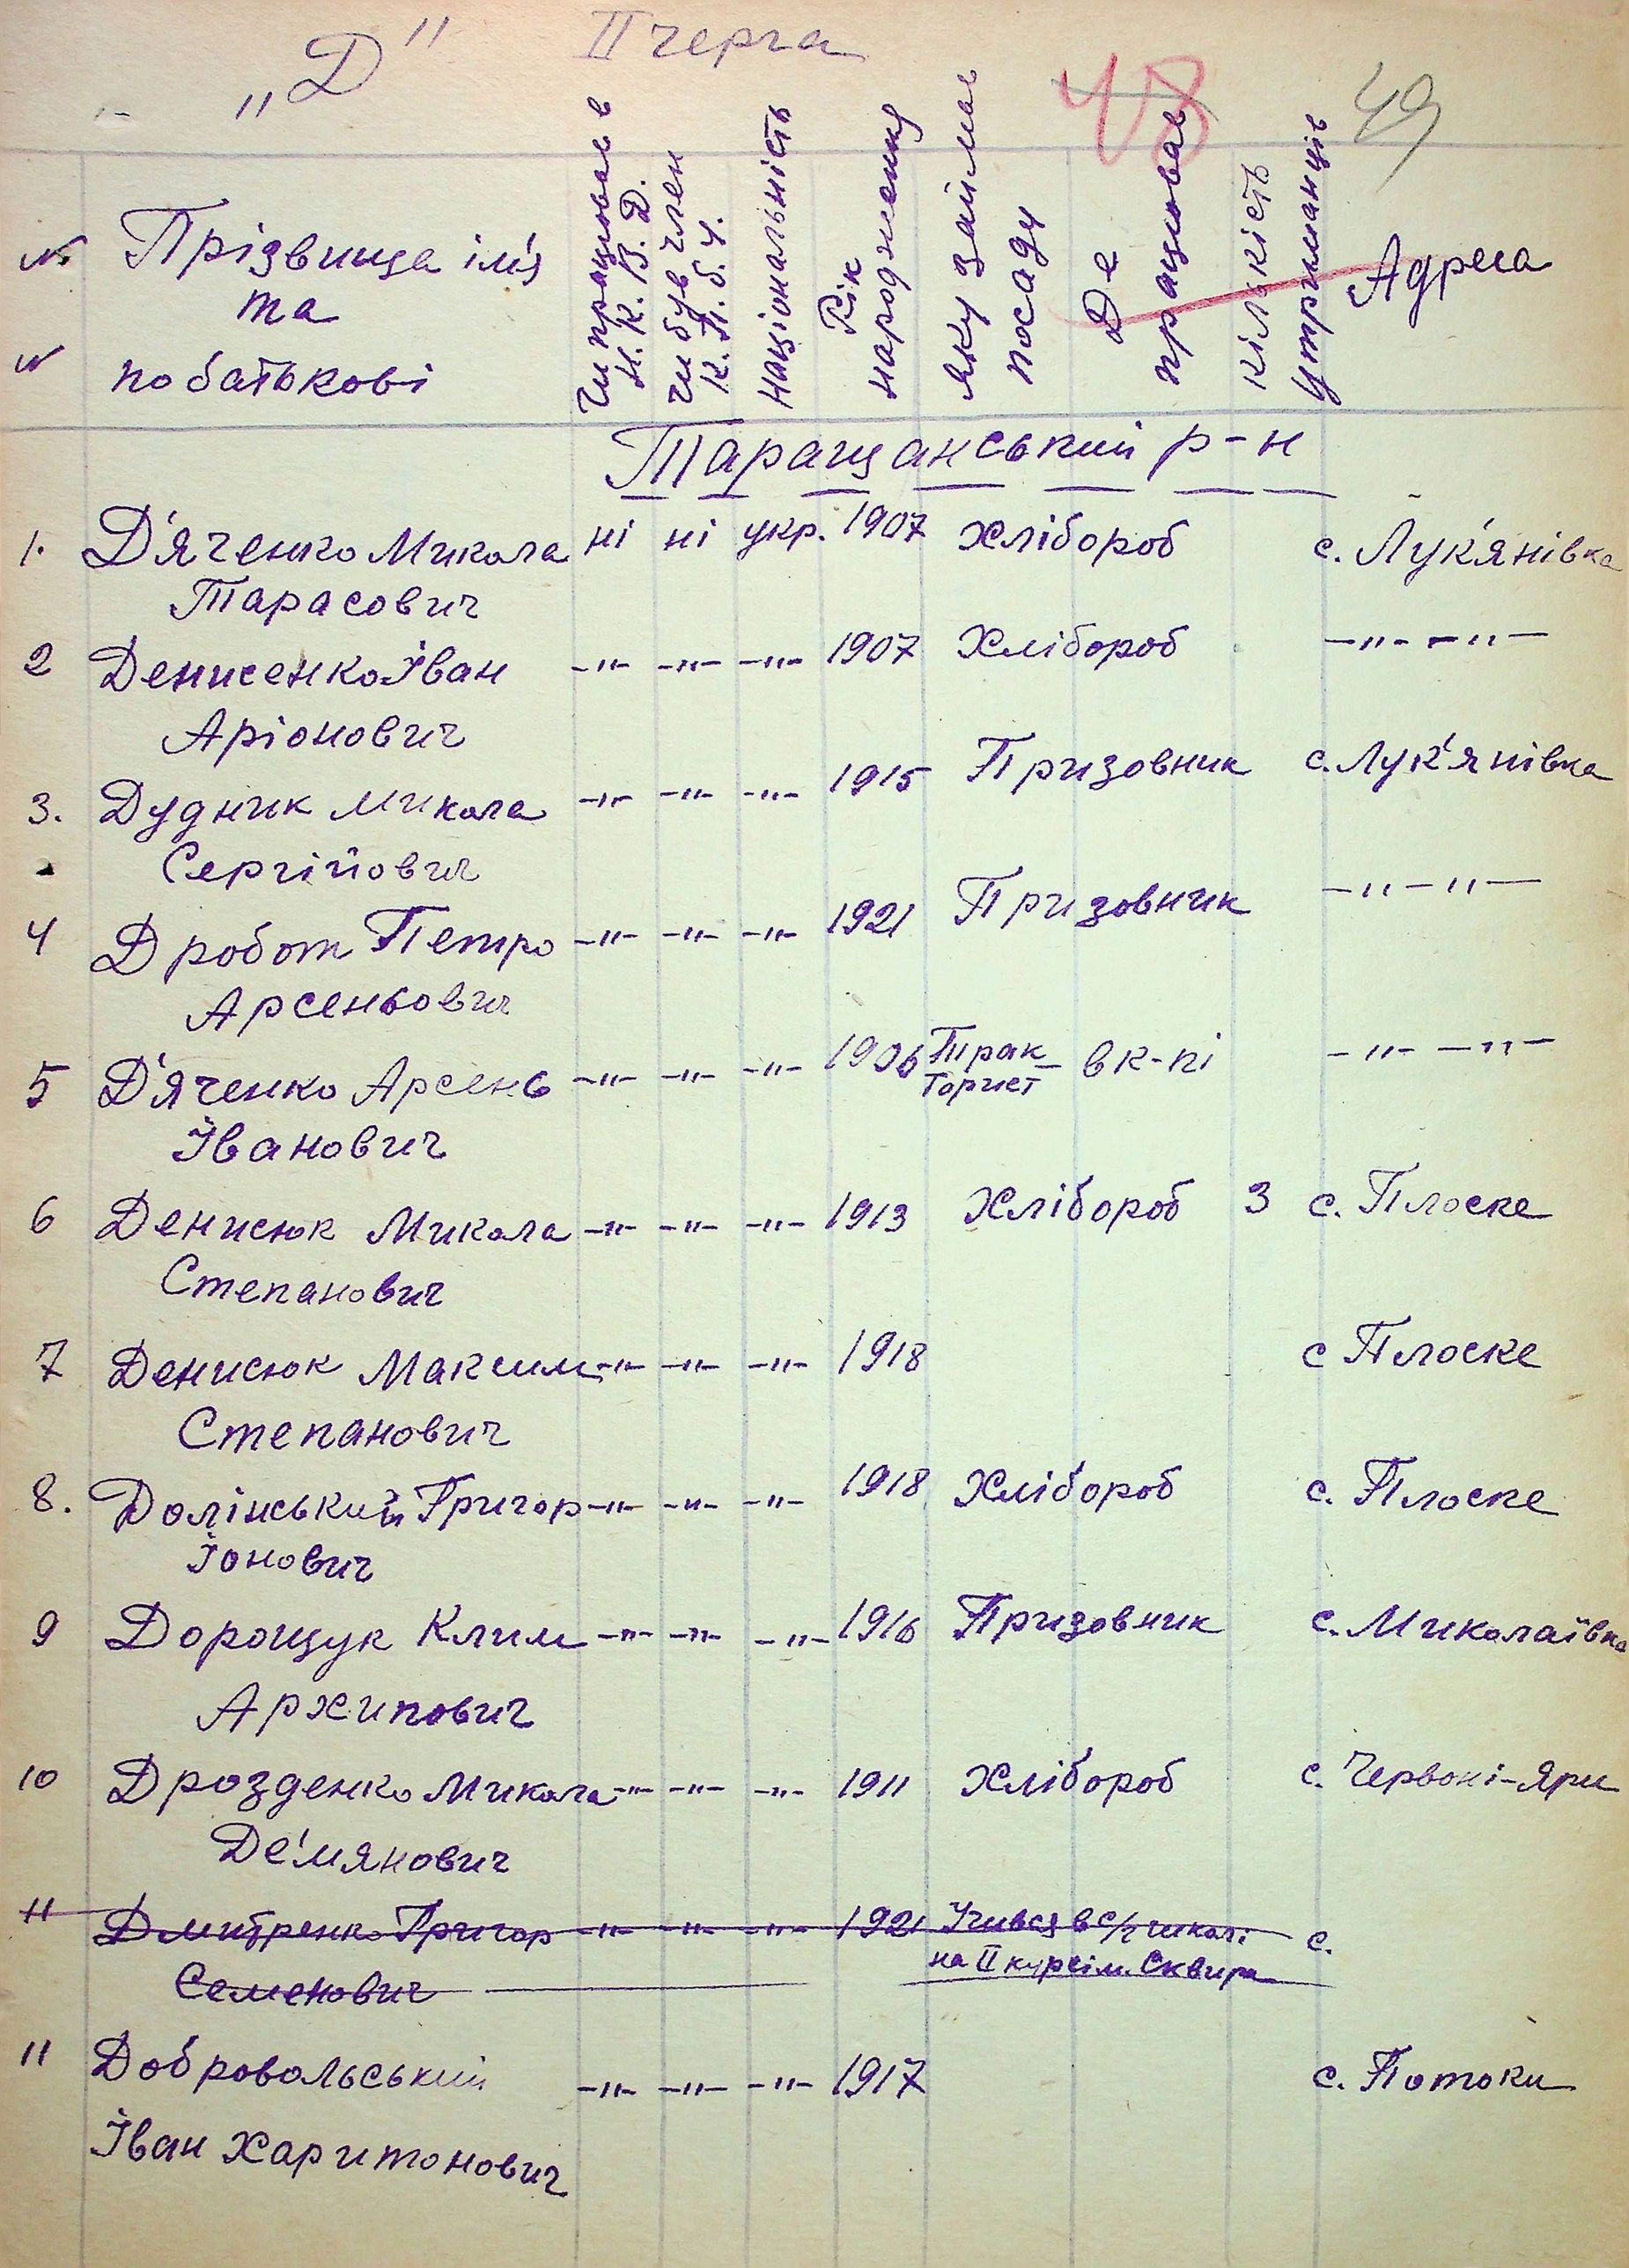 „Д" II черга
48 49
№ Прізвища ім'я
та
№ по батькові
Чи працював в
Н.К.В.Д.
Чи був член
К.П.б.У.
Національність
Рік
народження
Яку займав
посаду
Де
працював
Кількість
утриманців
Адреса
Таращанський р-н
1. Д'яченко Микола ні ні укр. 1907 Хлібороб с. Лук'янівка
Тарасович
2 Денисенко Іван -"- -"- -"- 1907 Хлібороб -"- -"-
Аріонович
3. Дудник Микола -"- -"- -"- 1915 Призовник с. Лук'янівка
Сергійович
4 Дробот Петро -"- -"- -"- 1921 Призовник -"-"-
Арсеньович
5 Д'яченко Арсень -"- -"- -"- 1906 Трак- в к-пі -"- -"-
торист
Іванович
6 Денисюк Микола -"- -"- -"- 1913 Хлібороб 3 с. Плоске
Степанович
7 Денисюк Максим -"- -"- -"- 1918 с Плоске
Степанович
8. Долінський Григор -"- -"- -"- 1918 Хлібороб с. Плоске
Іонович
9 Дорощук Клим -"- -"- -"- 1916 Призовник с. Миколаївка
Архипович
10 Дрозденко Микола -"- -"- -"- 1911 Хлібороб с. Червоні-Яри
Де'мянович
11 Дмитренко Григор -"- -"- -"- 1921 Учився в с/г школі с.
на II курсі м. Сквира
Семенович
11 Добровольський -"- -"- -"- 1917 с. Потоки
Іван Харитонович